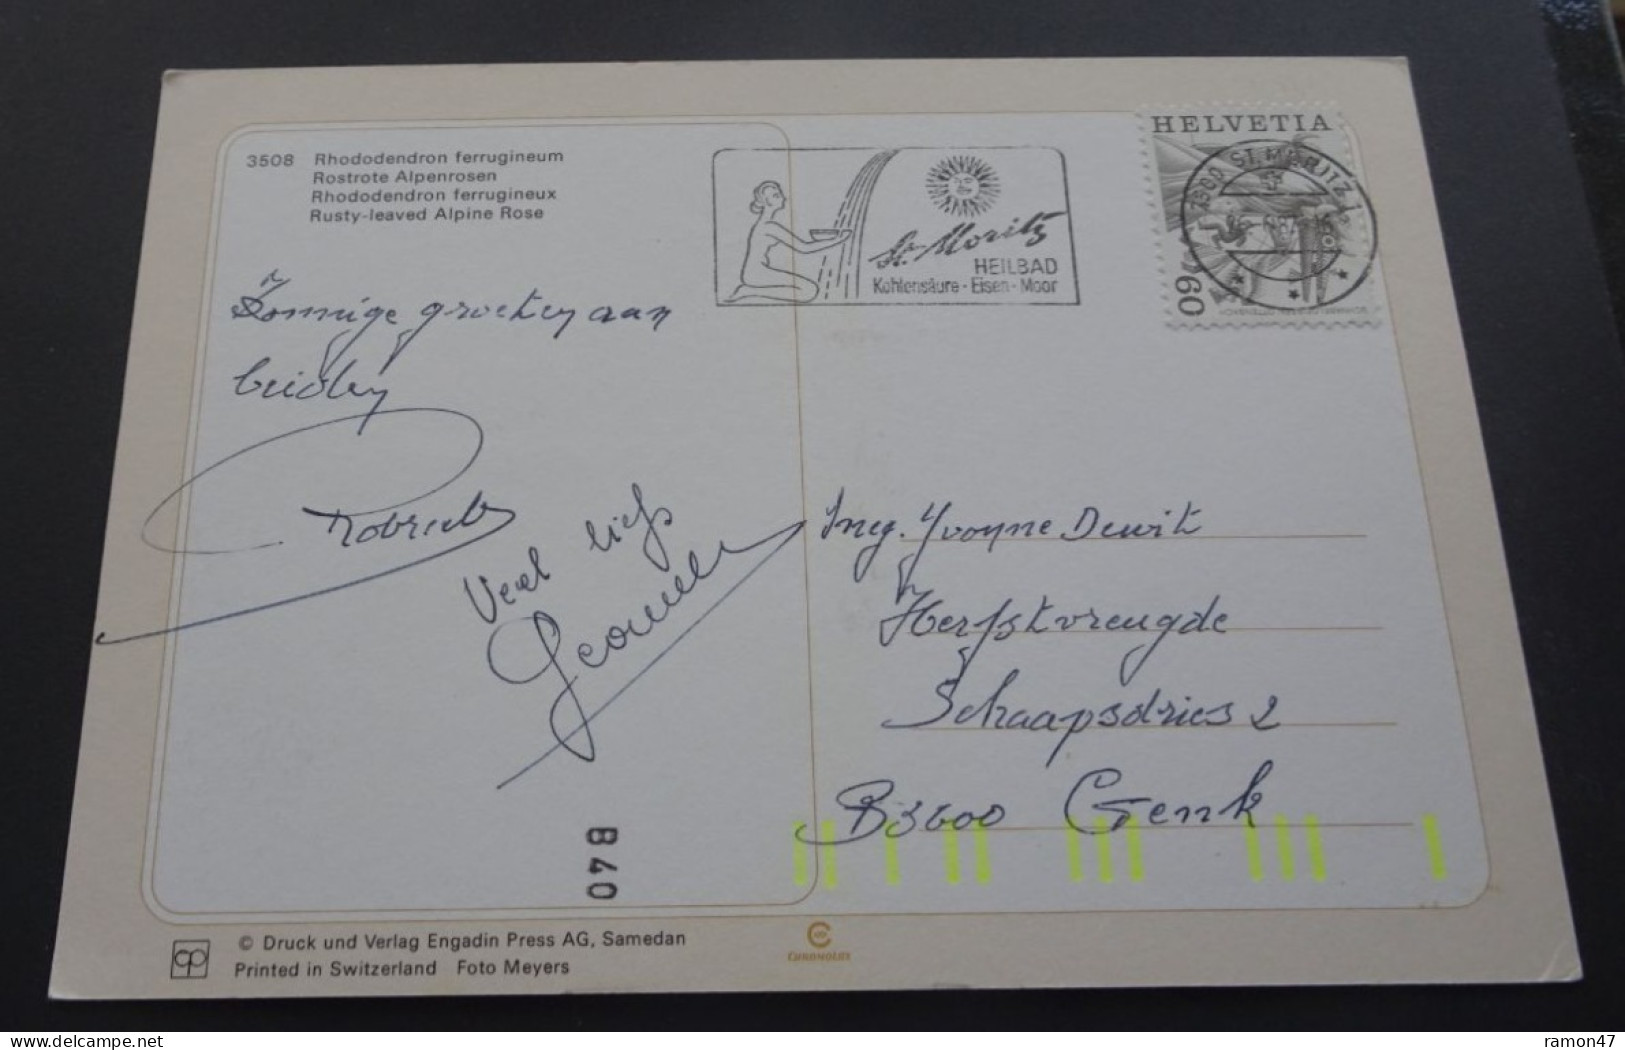 3508 Rhododendron ferrugineum
Rostrote Alpenrosen
Rhododendron ferrugineux
Rusty-leaved Alpine Rose
St. Moritz
HEILBAD
Kohlensäure - Eisen - Moor
HELVETIA
7500 ST. MORITZ 1
60
Zonnige groeten aan
beiden
Veel liefs
Ing. Yvonne Dewit
Herfstvreugde
Schaapsdries 2
B3600 Genk
840
© Druck und Verlag Engadin Press AG, Samedan
Printed in Switzerland Foto Meyers
cp
CHROMOLUX
ramon47